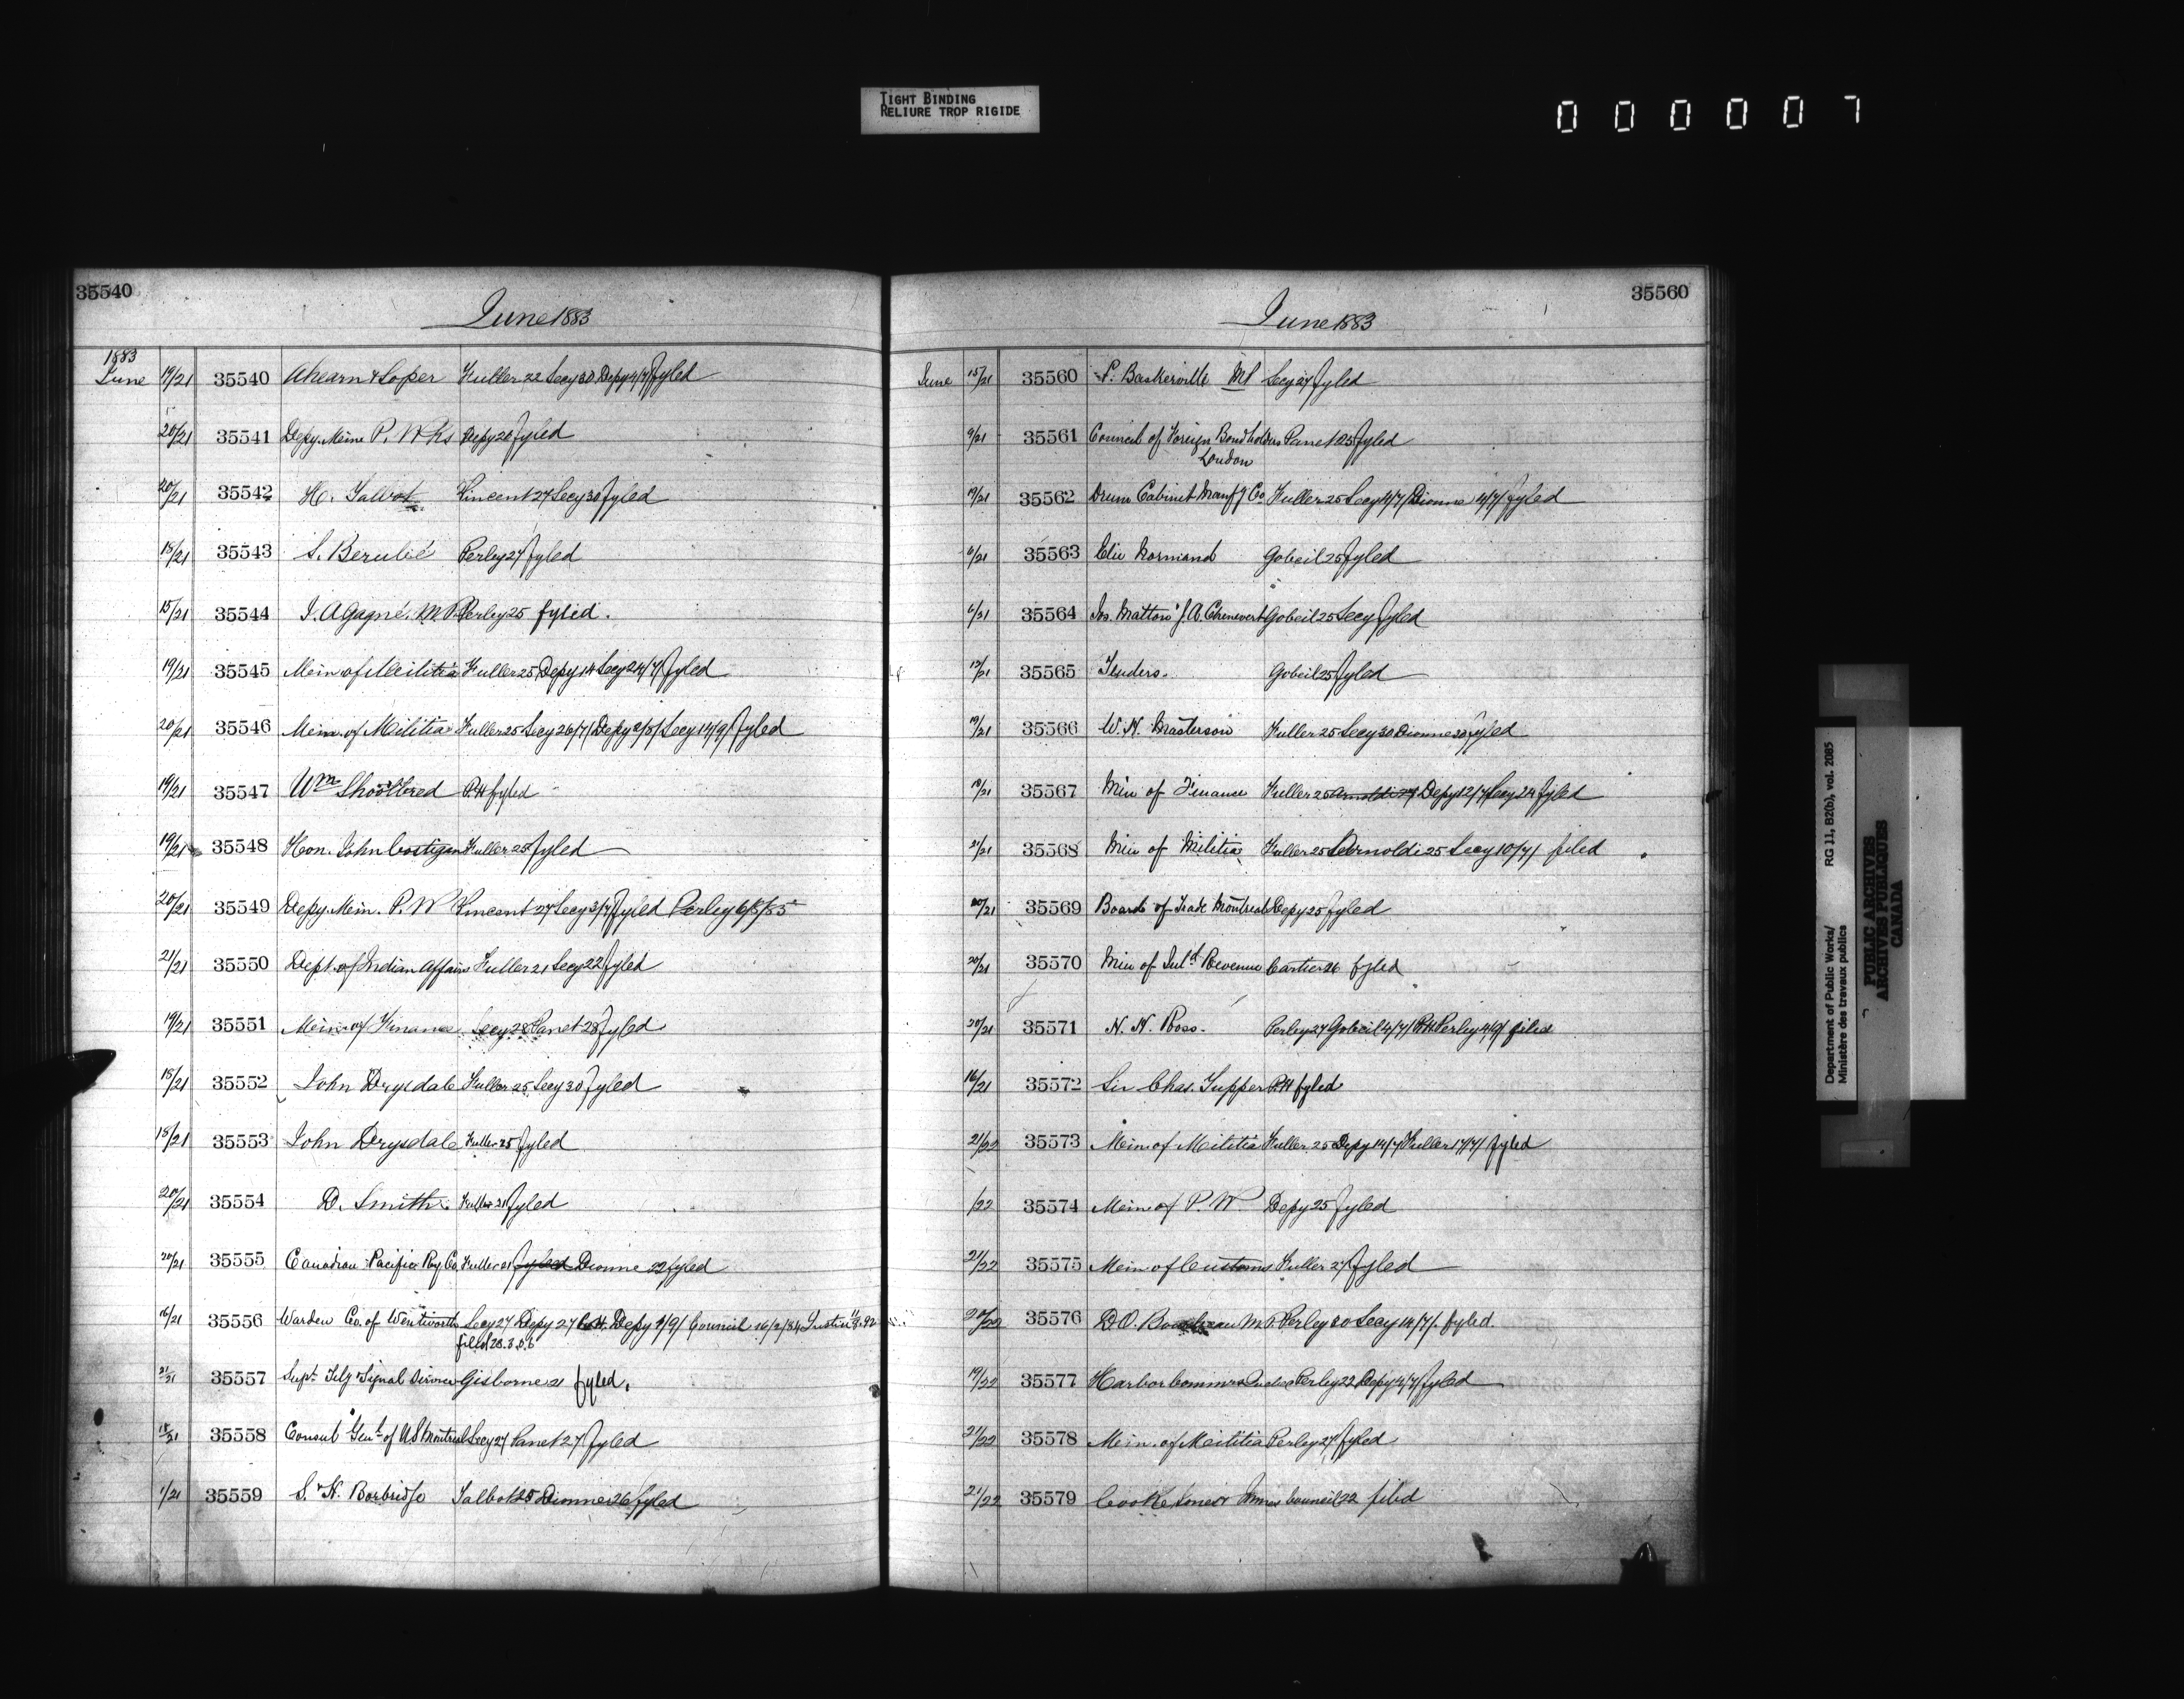 TIGHT BINDING
RELIURE TROP RIGIDE
0 0 0 0 0 7
35540
June 1883
1883
June 19/21 35540 Ahearn & Soper Fuller 22 Secy 30 Depy 4/7 fyled
20/21 35541 Depy. Min P. Wks Depy 20 fyled
20/21 35542 H. Talbot Vincent 27 Secy 30 fyled
18/21 35543 S. Berubé Perley 27 fyled
15/21 35544 J. A Gagné. M. P. Perley 25 fyled.
19/21 35545 Min of Militia Fuller 25 Depy 14 Secy 24/7 fyled
20/21 35546 Min. of Militia Fuller 25 Secy 26/7/ Depy Secy 14/9/ fyled
19/21 35547 Wm Shoolbred P.H fyled
19/21 35548 Hon. John Costigan Fuller 25 fyled
20/21 35549 Depy. Min. P. W Vincent 27 Secy 3/7 fyled Perley 6/8/85
21/21 35550 Dept. of Indian Affairs Fuller 21 Secy 22 fyled
19/21 35551 Min of Finance Secy 28 Panet 28 fyled
18/21 35552 John Drysdale Fuller 25 Secy 30 fyled
18/21 35553 John Drysdale Fuller 25 fyled
20/21 35554 D. Smith. Fuller 21 fyled
20/21 35555 Canadian Pacific Ry Co. Fuller 21 fyled Dionne 22 fyled
16/21 35556 Warden Co. of Wentworth Secy 27 Depy 27 Depy 1/9/ Council 16/2/84 Justice
filed 28.3.
21/21 35557 Supt. Telg & Signal Service Gisborne 21 fyled.
18/21 35558 Consul Genl of US Montreal Secy 27 Panet 27 fyled
1/21 35559 S. & H. Borbridge Talbot 25 Dionne 26 fyled
35560
June 1883
June 15/21 35560 P. Baskerville MP Secy 27 fyled
9/21 35561 Council of Foreign Bondholders Panet 25 fyled
London
19/21 35562 Drum Cabinet Manfg Co. Fuller 25 Secy 4/7/ Dionne 4/7/ fyled
6/21 35563 Elie Normand Gobeil 25 fyled
6/21 35564 Jos. Matton J. A. Chenevert Gobeil 25 Secy fyled
12/21 35565 Tenders. Gobeil 25 fyled
19/21 35566 W. H. Masterson Fuller 25 Secy 30 Dionne 30 fyled
18/21 35567 Min of Finance Fuller 25 Arnoldi 27 Depy 12/7 Secy 24 fyled
21/21 35568 Min of Militia Fuller 25 Arnoldi 25 Secy 10/7/ filed
20/21 35569 Board of Trade Montreal Depy 25 fyled
20/21 35570 Min of Inld Revenue Cartier 26 fyled
20/21 35571 N. H. Ross. Perley 27 Gobeil 4/7/ P.H. Perley 4/9/ filed
16/21 35572 Sir Chas. Tupper P.H fyled
21/22 35573 Min of Militia Fuller 25 Depy 14/7/ Fuller 17/7/ fyled
/22 35574 Min of P. W Depy 25 fyled
21/22 35575 Min of Customs Fuller 27 fyled
20/22 35576 D. O. M. P. Perley 30 Secy 14/7/ fyled.
19/22 35577 Harbor Commrs Quebec Perley 22 Depy 4/7 fyled
21/22 35578 Min. of Militia Perley 27 fyled
21/22 35579 Cooke Jones Council 22 filed
Department of Public Works/
Ministère des travaux publics
RG 11, B2(b), vol. 2085
PUBLIC ARCHIVES
ARCHIVES PUBLIQUES
CANADA